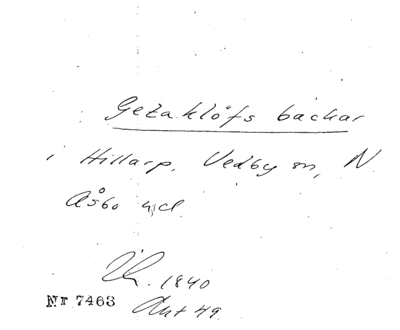 Getaklöfs backar
i Hillarp, Vedby sn, N.
Åsbo hd.
1840
Nr 7463
49